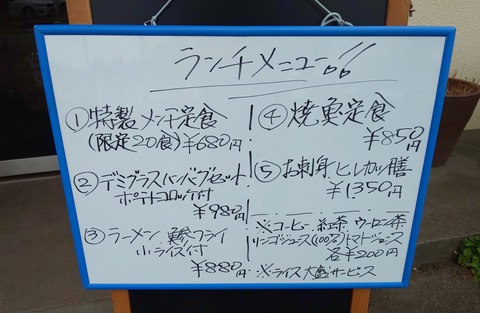 ランチメニュー!!
①特製メンチ定食
(限定20食)¥680円
②デミグラスハンバーグセット
ポテトコロッケ付
¥980円
③ラーメン 鯵フライ
小ライス付
¥880円
④焼魚定食
¥850円
⑤お刺身ヒレカツ膳
¥1350円
※コーヒー 紅茶 ウーロン茶
リンゴジュース(100%)トマトジュース
各¥200円
※ライス大盛サービス